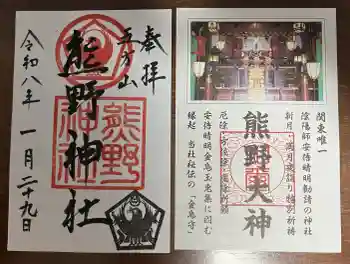 奉拝
五方山
熊野神社
熊野神社
令和八年 一月二十九日
関東唯一
陰陽師安倍晴明勧請の神社
新月・満月夜詣り特別祈祷
熊野大神
安倍晴明金烏玉兎集に因む
縁起 当社秘伝の「金烏守」